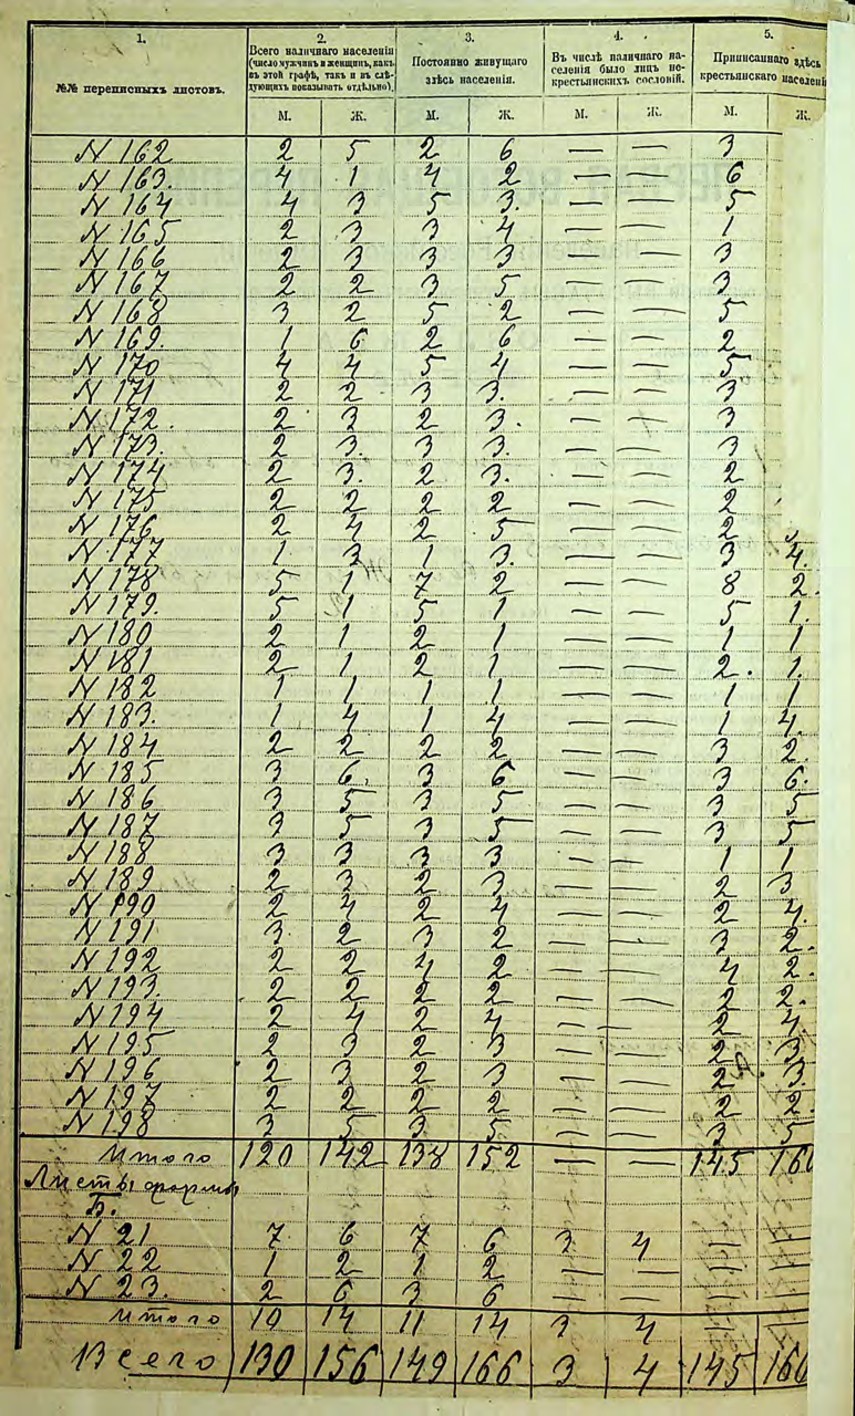 1. 2. 3. 4. 5.
№№ переписныхъ листовъ.
Всего наличнаго населенія
(число мужчинъ и женщинъ, какъ
въ этой графѣ, такъ и въ слѣ-
дующихъ показывать отдѣльно).
Постоянно живущаго
здѣсь населенія.
Въ числѣ наличнаго на-
селенія было лицъ не-
крестьянскихъ сословій.
Приписаннаго здѣсь
крестьянскаго населені
М. Ж. М. Ж. М. Ж. М. Ж.
N 162 2 5 2 6 — — 3
N 163. 4 1 4 2 — — 6
N 164 4 3 5 3. — — 5
N 165 2 3 3 4 — — 1
N 166 2 3 3 3 — — 3
N 167 2 2 3 5 — — 3
N 168 3 2 5 2 — — 5
N 169. 1 6 2 6 — — 2
N 170 4 4 5 4 — — 5
N 171 2 2 3 3. — — 3
N 172. 2 3 2 3. — — 3
N 173. 2 3. 3 3. — — 3
N 174 2 3. 2 3. — — 2
N 175 2 2 2 2 — — 2
N 176 2 4 2 5 — — 2
N 177 1 3 1 3. — — 3 4.
N 178 5 1 7 2 — — 8 2.
N 179. 5 1 5 1 — — 5 1.
N 180 2 1 2 1 — — 1 1
N 181 2 1 2 1 — — 2. 1.
N 182 1 1 1 1 — — 1 1
N 183. 1 4 1 4 — — 1 4.
N 184 2 2 2 2 — — 3 2.
N 185 3 6. 3 6 — — 3 6.
N 186 3 5 3 5 — — 3 5
N 187 3 5 3 5 — — 3 5
N 188 3 3 3 3 — — 1 1
N 189 2 3 2 3 — — 2 3
N 190 2 4 2 4 — — 2 4.
N 191 3 2 3 2 — — 3 2.
N 192 2 2 4 2 — — 4 2.
N 193. 2 2 2 2 — — 2 2.
N 194 2 4 2 4 — — 2 4.
N 195 2 3 2 3 — — 2 3
N 196 2 3 2 3 — — 2 3.
N 197 2 2 2 2 — — 2 2.
N 198 3 5 3 5 — — 3 5
Итого 120 142 138 152 — — 145 160
Листы формы
Б.
N 21 7 6 7 6 3 4 — —
N 22 1 2 1 2 — — — —
N 23. 2 6 3 6 — — — —
Итого 10 14 11 14 3 4 —
Всего 130 156 149 166 3 4 145 160